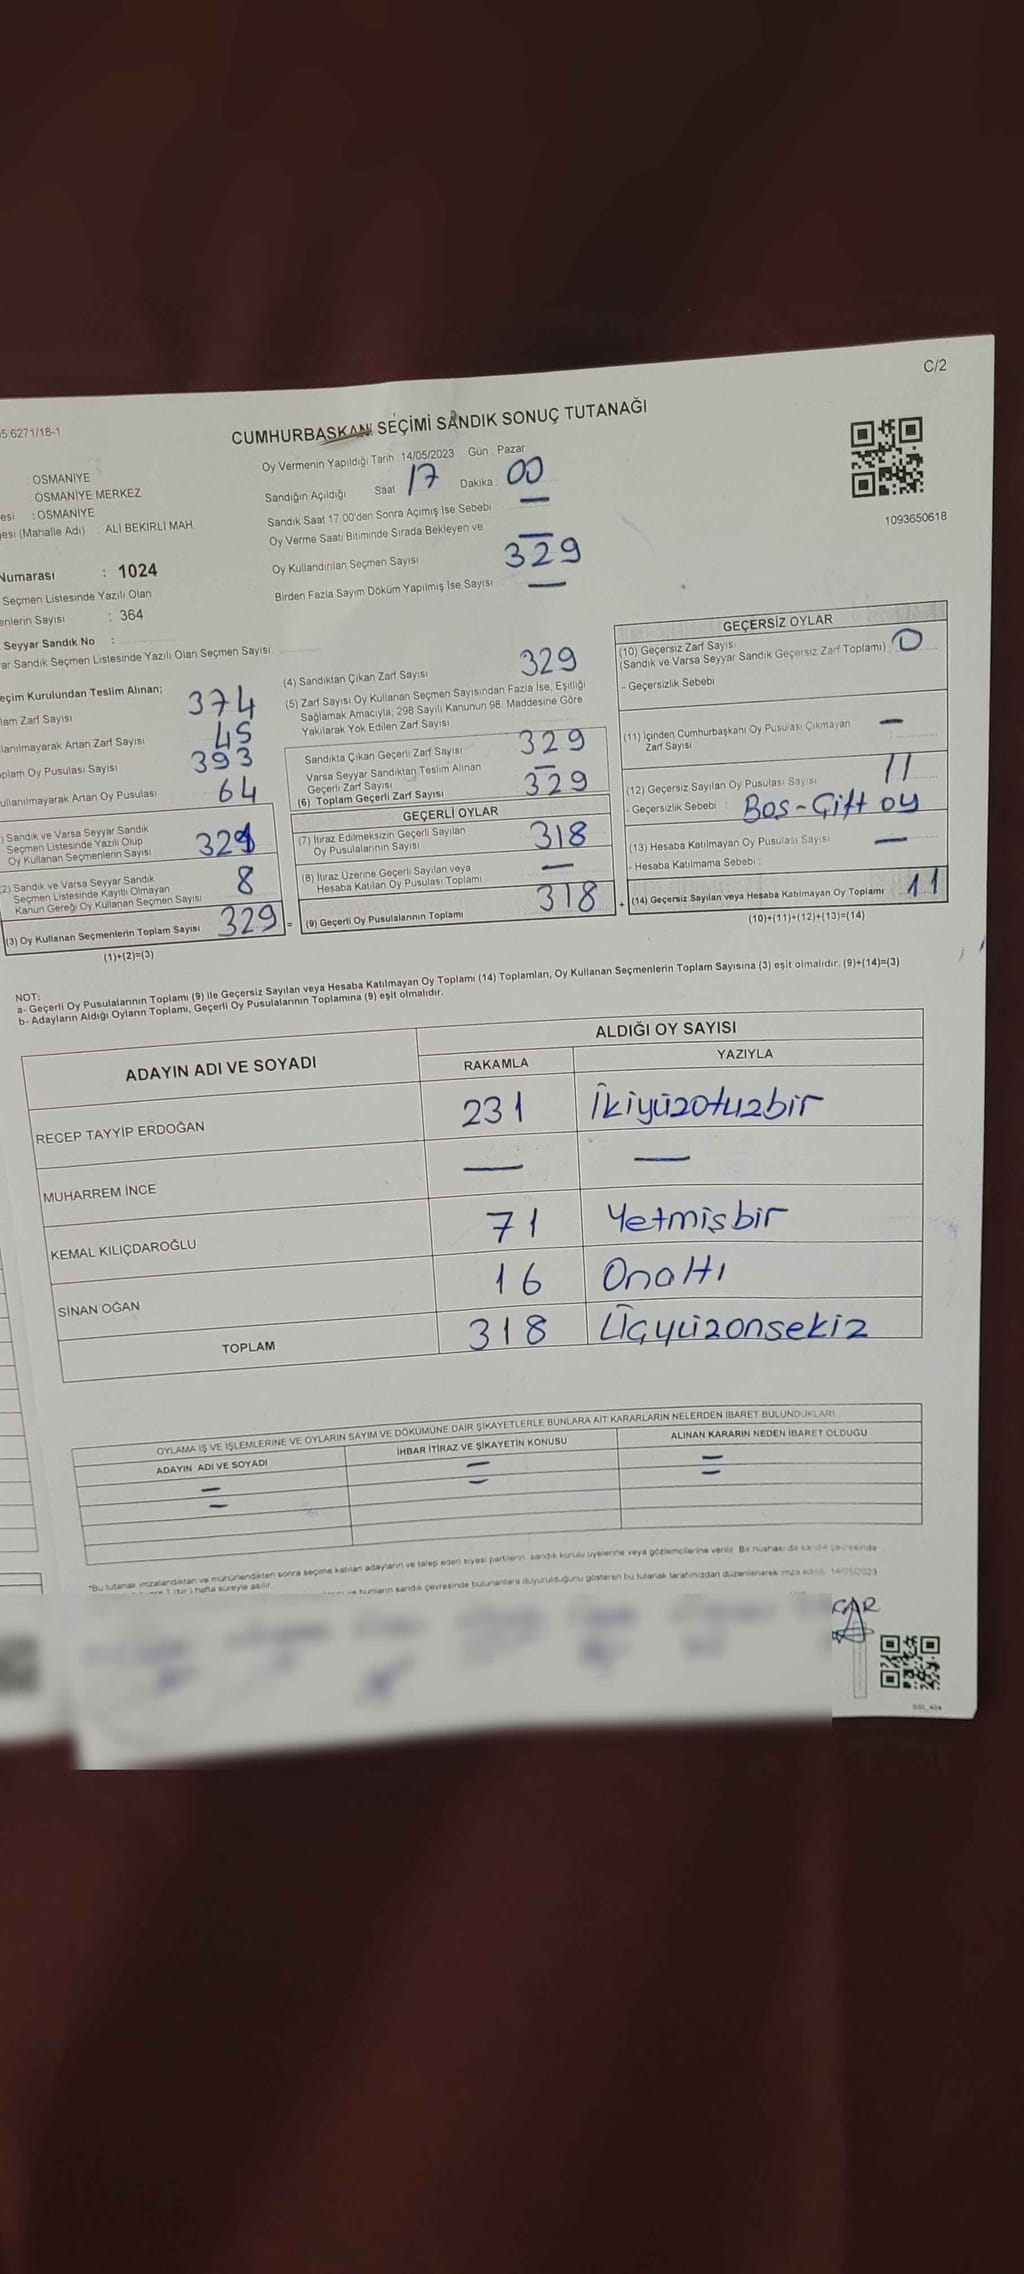 C/2
5 6271/18-1
CUMHURBAŞKANI SEÇİMİ SANDIK SONUÇ TUTANAĞI
OSMANİYE
OSMANİYE MERKEZ
esi : OSMANİYE
esi (Mahalle Adı) : ALİ BEKİRLİ MAH.
Oy Vermenin Yapıldığı Tarih 14/05/2023 Gün : Pazar
Sandığın Açıldığı Saat 17 Dakika : 00
Sandık Saat 17:00'den Sonra Açılmış İse Sebebi —
Oy Verme Saati Bitiminde Sırada Bekleyen ve —
Oy Kullandırılan Seçmen Sayısı 329
Birden Fazla Sayım Döküm Yapılmış İse Sayısı —
1093650618
Numarası : 1024
Seçmen Listesinde Yazılı Olan
enlerin Sayısı : 364
Seyyar Sandık No :
ar Sandık Seçmen Listesinde Yazılı Olan Seçmen Sayısı:
eçim Kurulundan Teslim Alınan;
lam Zarf Sayısı 374
lanılmayarak Artan Zarf Sayısı 45
oplam Oy Pusulası Sayısı 393
ullanılmayarak Artan Oy Pusulası 64
) Sandık ve Varsa Seyyar Sandık
Seçmen Listesinde Yazılı Olup
Oy Kullanan Seçmenlerin Sayısı
2) Sandık ve Varsa Seyyar Sandık
Seçmen Listesinde Kayıtlı Olmayan
Kanun Gereği Oy Kullanan Seçmen Sayısı 8
(3) Oy Kullanan Seçmenlerin Toplam Sayısı 329 =
(1)+(2)=(3)
(4) Sandıktan Çıkan Zarf Sayısı 329
(5) Zarf Sayısı Oy Kullanan Seçmen Sayısından Fazla İse, Eşitliği
Sağlamak Amacıyla, 298 Sayılı Kanunun 98. Maddesine Göre
Yakılarak Yok Edilen Zarf Sayısı
Sandıkta Çıkan Geçerli Zarf Sayısı 329
Varsa Seyyar Sandıktan Teslim Alınan
Geçerli Zarf Sayısı —
(6) Toplam Geçerli Zarf Sayısı 329
GEÇERLİ OYLAR
(7) İtiraz Edilmeksizin Geçerli Sayılan
Oy Pusulalarının Sayısı 318
(8) İtiraz Üzerine Geçerli Sayılan veya
Hesaba Katılan Oy Pusulası Toplamı —
(9) Geçerli Oy Pusulalarının Toplamı 318 +
GEÇERSİZ OYLAR
(10) Geçersiz Zarf Sayısı
(Sandık ve Varsa Seyyar Sandık Geçersiz Zarf Toplamı) : 0
- Geçersizlik Sebebi
(11) İçinden Cumhurbaşkanı Oy Pusulası Çıkmayan —
Zarf Sayısı
(12) Geçersiz Sayılan Oy Pusulası Sayısı 11
- Geçersizlik Sebebi : Boş-Çift oy
(13) Hesaba Katılmayan Oy Pusulası Sayısı —
- Hesaba Katılmama Sebebi :
(14) Geçersiz Sayılan veya Hesaba Katılmayan Oy Toplamı 11
(10)+(11)+(12)+(13)=(14)
NOT:
a- Geçerli Oy Pusulalarının Toplamı (9) ile Geçersiz Sayılan veya Hesaba Katılmayan Oy Toplamı (14) Toplamları, Oy Kullanan Seçmenlerin Toplam Sayısına (3) eşit olmalıdır. (9)+(14)=(3)
b- Adayların Aldığı Oyların Toplamı, Geçerli Oy Pusulalarının Toplamına (9) eşit olmalıdır.
ADAYIN ADI VE SOYADI ALDIĞI OY SAYISI
RAKAMLA YAZIYLA
RECEP TAYYİP ERDOĞAN 231 İkiyüzotuzbir
MUHARREM İNCE — —
KEMAL KILIÇDAROĞLU 71 Yetmişbir
SİNAN OĞAN 16 Onaltı
TOPLAM 318 Üçyüzonsekiz
OYLAMA İŞ VE İŞLEMLERİNE VE OYLARIN SAYIM VE DÖKÜMÜNE DAİR ŞİKAYETLERLE BUNLARA AİT KARARLARIN NELERDEN İBARET BULUNDUKLARI
ADAYIN ADI VE SOYADI İHBAR İTİRAZ VE ŞİKAYETİN KONUSU ALINAN KARARIN NEDEN İBARET OLDUĞU
— — —
— — —
*Bu tutanak imzalandıktan ve mühürlendikten sonra seçime katılan adayların ve talep eden siyasi partilerin sandık kurulu üyelerine veya gözlemcilerine verilir. Bir nüshası da sandık çevresinde
hafta süreyle asılır.
ve bunların sandık çevresinde bulunanlara duyurulduğunu gösteren bu tutanak tarafımızdan düzenlenerek imza edildi. 14/05/2023